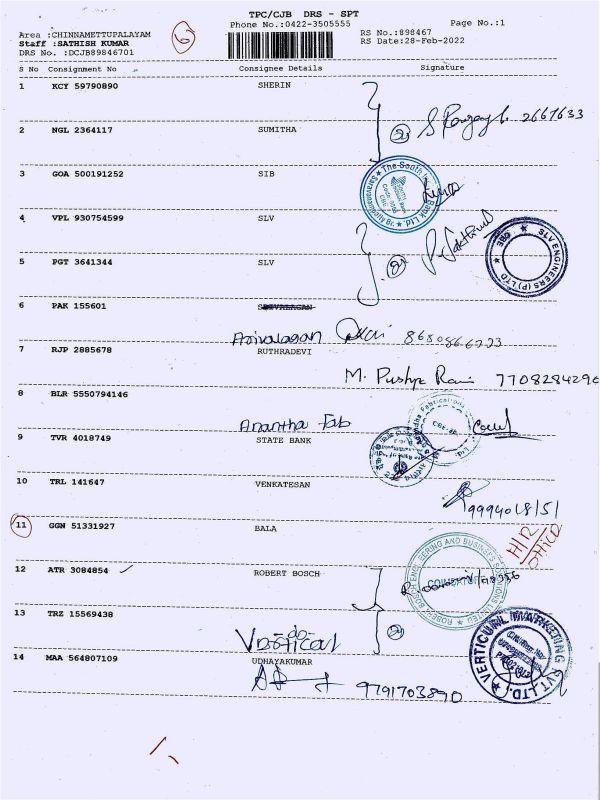 TPC/CJB DRS - SPT
Phone No.:0422-3505555
Page No.:1
Area :CHINNAMETTUPALAYAM
Staff :SATHISH KUMAR
DRS No. :DCJB89846701
RS No.:898467
RS Date:28-Feb-2022
6
S No Consignment No Consignee Details Signature
1 KCY 59790890 SHERIN
2667633
2 NGL 2364117 SUMITHA
3 GOA 500191252 SIB
The South Bank Ltd
4 VPL 930754599 SLV
SLV ENGINEERS (P) LTD
5 PGT 3641344 SLV
6 PAK 155601
Arivalagan
7 RJP 2885678 RUTHRADEVI
M. Pushpa Rani
8 BLR 5550794146
Anantha Fab
9 TVR 4018749 STATE BANK
10 TRL 141647 VENKATESAN
9994018151
11 GGN 51331927 BALA
H/R OFFICE
12 ATR 3084854 ROBERT BOSCH
ROBERT BOSCH ENGINEERING AND BUSINESS SOLUTIONS LIMITED
13 TRZ 15569438 -do-
Vertical
VERTICURL MARKETING PVT LTD.
14 MAA 564807109 UDHAYAKUMAR
9791703890